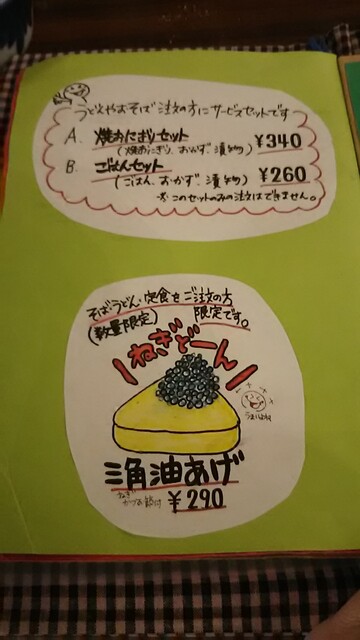 うどんやおそば注文の方にサービスセットです
A. 焼おにぎりセット ¥340
(焼おにぎり、おかず、漬物)
B. ごはんセット ¥260
(ごはん、おかず、漬物)
※このセットのみの注文はできません。
そば・うどん、定食をご注文の方
(数量限定) 限定です。
ねぎどーん
三角油あげ
ねぎ
かつお節付 ¥290